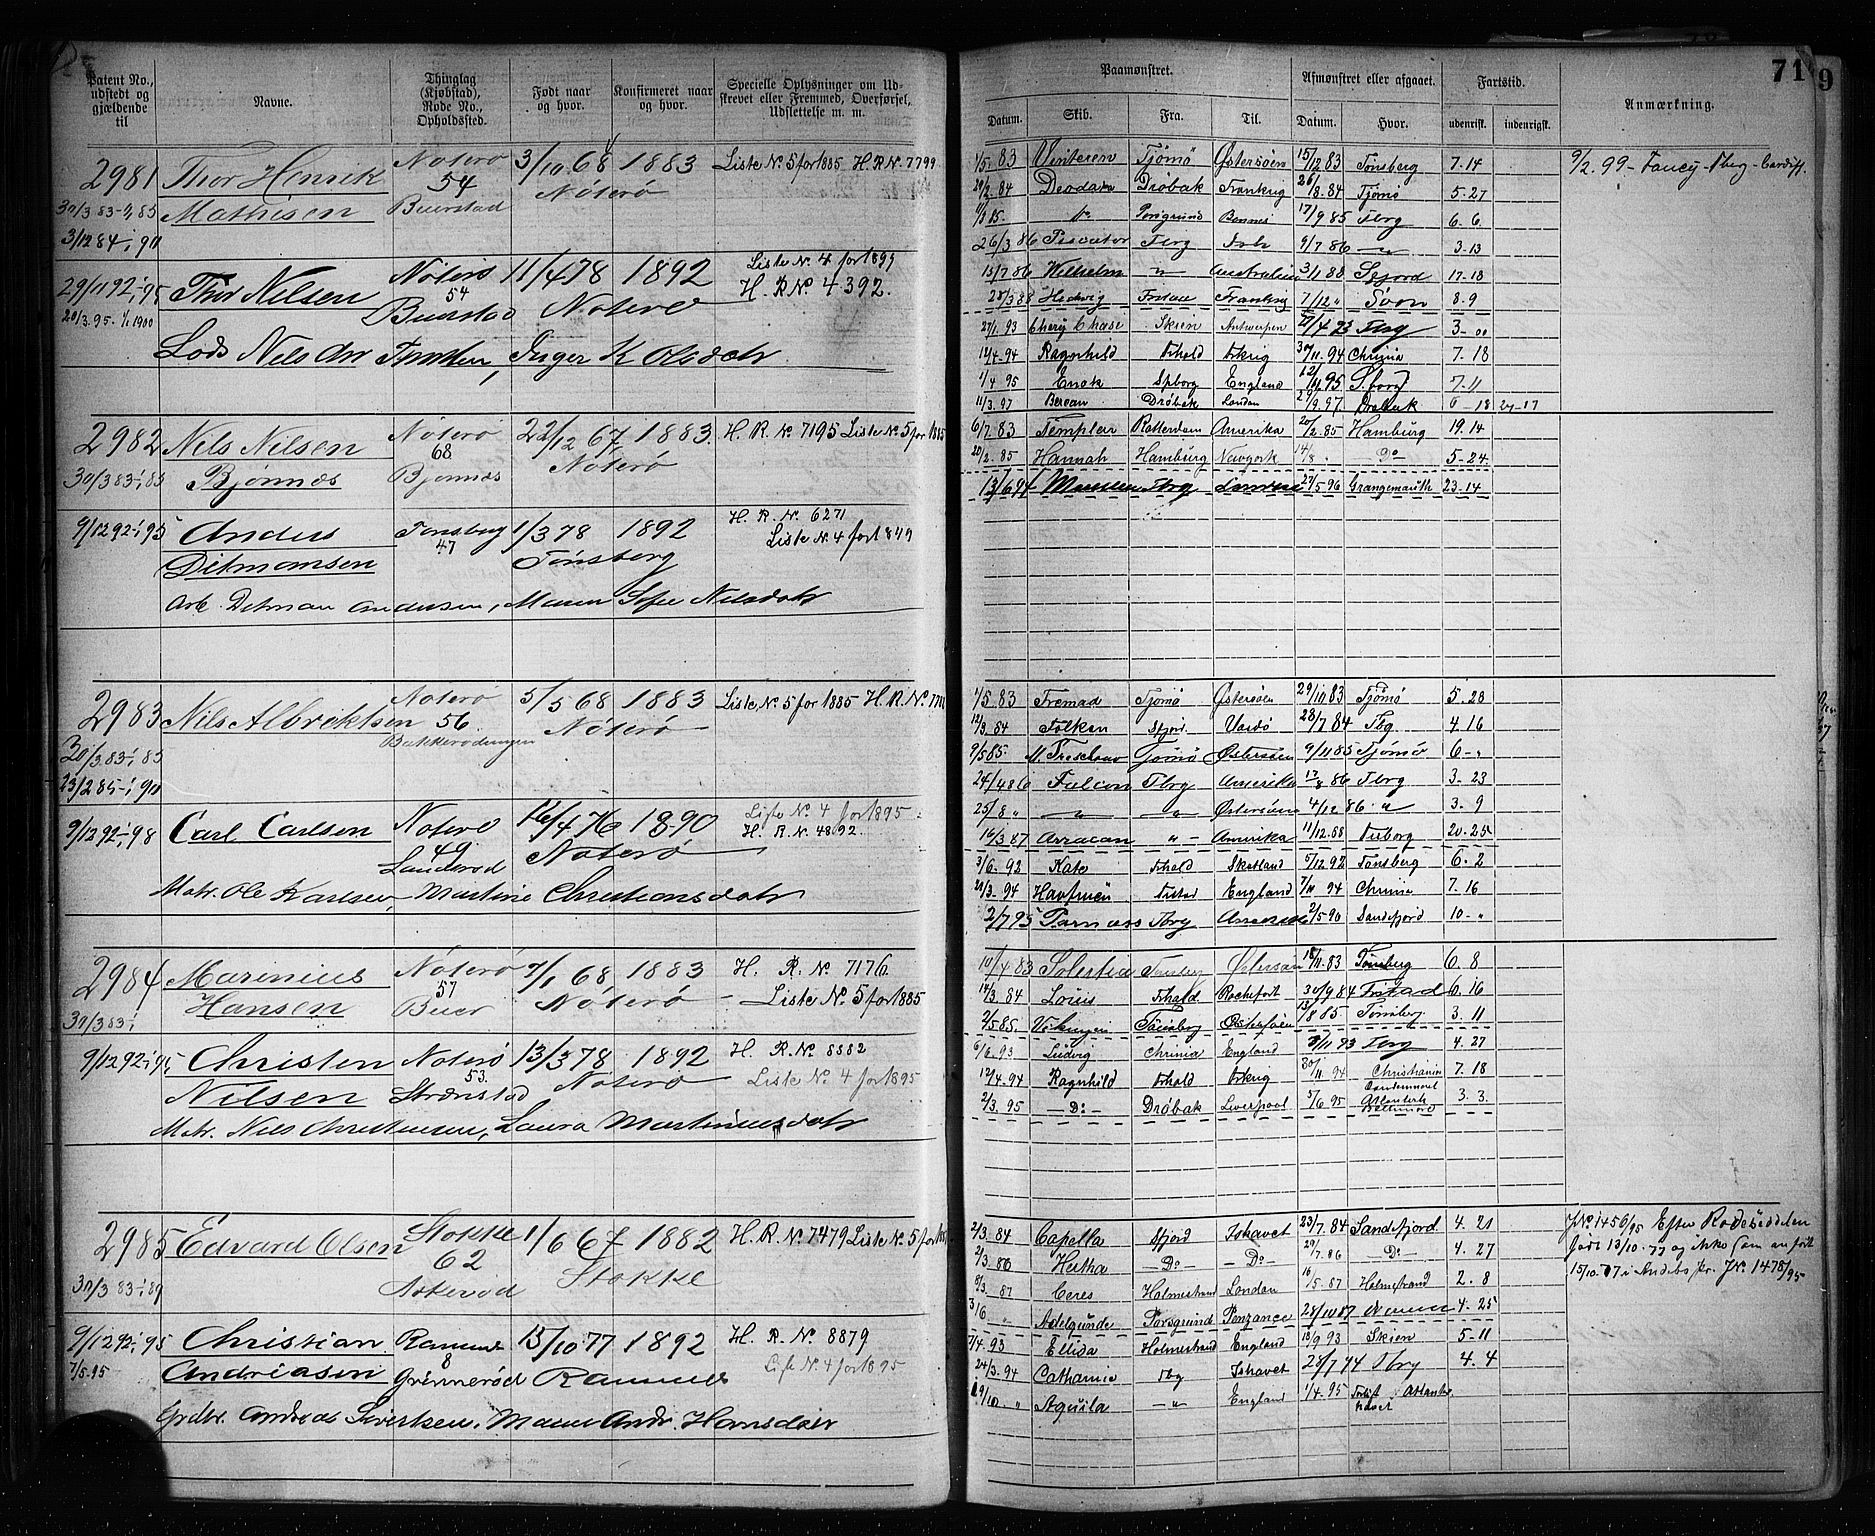 Patent No., udstedt og gjældende til
Navne.
Thinglag (Kjøbstad), Rode No., Opholdssted.
Født naar og hvor.
Konfirmeret naar og hvor.
Specielle Oplysninger om Udskrevet eller Fremmed, Overførsel, Udslettelse m. m.
2981 Thor Henrik Nøterø 3/10 68 1883 Liste No. 5 for 1885 H. R. No. 7799
Mathisen 54 Buerstad Nøterø
3/12 84 - i 90
29/11 92 - i 95 Thor Nilsen Nøterø 11/4 78 1892 Liste No. 4 for 1899
20/3. 95. 1/1 1900 54 Buerstad Nøterø H. R. No. 4392.
Lods Nils Inger K Olsdatr
2982 Nils Nilsen Nøterø 22/12 67 1883. H. R. No 7195 Liste No. 5 for 1885
30/3 83 - i 85 Bjønnæs 68 Bjønnæs Nøterø
9/12 92 - i 95 Anders Tønsberg 1/3 78 1892 H. R. No. 6271
Ditmansen 47 Tønsberg Liste No. 4 for 1899
Arb. Ditman Andersen, Maren Sofie Nilsdatr
2983 Nils Albriktsen Nøterø 5/5 68 1883 Liste No. 5 for 1885 H. R. No.
30/3 83 - i 85 56. Nøterø
23/2 85 - i 90
9/12 92 - i 98 Carl Carlsen Nøterø 16/4 76 1890 Liste No. 4 for 1895
49. Nøterø H. R. No. 4892.
Matr. Ole Karlsen, Martine Christiansdatr
2984 Marinius Nøterø 7/1 68 1883 H. R. No 7176
30/3 83 i Hansen 57 Buer Nøterø - Liste No. 5 for 1885
9/12 92 - i 95 Christen Nøterø 13/3 78 1892 H. R. No. 8882
Nilsen 53. Nøterø Liste No. 4 for 1895
Matr. Nils Christensen, Laura Martiniusdatr
2985 Edvard Olsen Stokke 1/6 67 1882 H. R. No 7479 Liste No. 5 for
30/3 83 - i 89 62 Stokke
9/12 92 - i 95 Christian Ramnes 15/10 77 1892 H. R. No. 8879
7/5. 95 Andreasen 8 Grønnerød Ramnes Liste No. 4 for 1895
Grdbr. Andreas Sivertsen, Maren Andr. Hansdatr
71
9
Paamønstret.
Afmønstret eller afgaaet.
Fartstid.
Anmærkning.
Datum. Skib. Fra. Til. Datum. Hvor. udenrikst. indenrigst.
1/5. 83 Venteren Tjømø Østersøen 15/12 83 Tønsberg 7. 14 9/2. 99 - Fancy - Tbrg - Cardiff.
20/2. 84 Deodata Drøbak Frankrig 26/8. 84 Tjømø 5. 27
Do Porsgrund 17/9 85 Tbrg 6. 6
26/3 86 Piscator Tbrg 9/7 86 - " - 3. 13
15/7 86 Wilhelm " Australien 3/11 88 Sfjord 17. 18
28/3 88 Hedvig Frankrig 7/12 " 8. 9
27/1. 93 Chevy Chase Skien Antwerpen 27/4 93 Tbrg 3 - 00
12/4. 94 Ragnhild Frhald Frkrig 30/11. 94 Chrinia 7. 18
1/4 95 Enok Spborg England 12/11 95 S.borg 7. 11
11/3. 97 Bercan Drøbak London 29/9. 97. Drøbak 6 - 18 27 - 17
6/7. 83 Templer Rotterdam Amerika 20/2. 85 Hamburg 19. 14
20/2. 85 Hannah Hamburg Newyork 14/8 " Do 5 - 24.
13/6 94 Tbrg 27/5 96 Grangemouth 23. 14
1/5. 83 Fremad Tjømø Østersøen 29/10 83 Tjømø 5. 28
12/3. 84 Falken Sfjord Vardø 28/7 84 Tbg 4. 16
9/5 85 Tjømø Østersøen 9/11 85 Tjømø 6 - "
24/4 86 Falcon Tbrg Amerika 17/8 86 Tbrg 3. 23
25/8 " - " - " Østersøen 4/12 86 " 3. 9
16/3 87 Arracan " - Amerika 11/12. 88 20. 25
3/6. 92 Kato Frhald Skotland 5/12. 92 Tønsberg 6. 2
28/3. 94 Havfruen Fristad England 7/11 94 Chrinia 7. 16
2/7 95 Parnass Tbrg Amerika 2/5 90 Sandefjord 10 - "
10/4 83 Tønsberg Østersøen 18/11. 83 Tønsberg 6. 8
14/3. 84 Louis Frhald Rochefort 30/9 84 Fristad 6. 16
2/5 85. Vikingen Tønsberg Østersøen 13/8 85 Tønsberg 3. 11
6/6. 93 Ludvig Chrinia England 3/11 93 Tbrg 4. 27
12/4. 94 Ragnhild Frhald Frkrig 30/11 94 Christiania 7. 18
2/3. 95 - Do - Drøbak Liverpool 5/6 95 3. 3.
2/3. 84 Capella Sfjord Ishavet 23/7. 84 Sandefjord 4. 21 JNo. 1456/95 Efter Rodeseddelen
2/3. 86 Hertha - Do - - Do - 29/7. 86 - Do - 4. 27 født 13/10. 77 og ikke som anført
8/3. 87 Ceres Holmestrand London 16/5. 87 Holmestrand 2. 8 15/10. 77 i Andebo JNo 1478/95
3/6 " Adelgunde Porsgrund Penzance 28/10 87 4. 25
7/4. 93 Ellida Holmestrand England 18/9 93 Skien 5. 11
24/3. 94 Catharina Tbg Ishavet 28/7 94 Tbrg 4. 4
29/10 " Aquila - " - England 1/4. 95 Forlist i Atlanterhavet